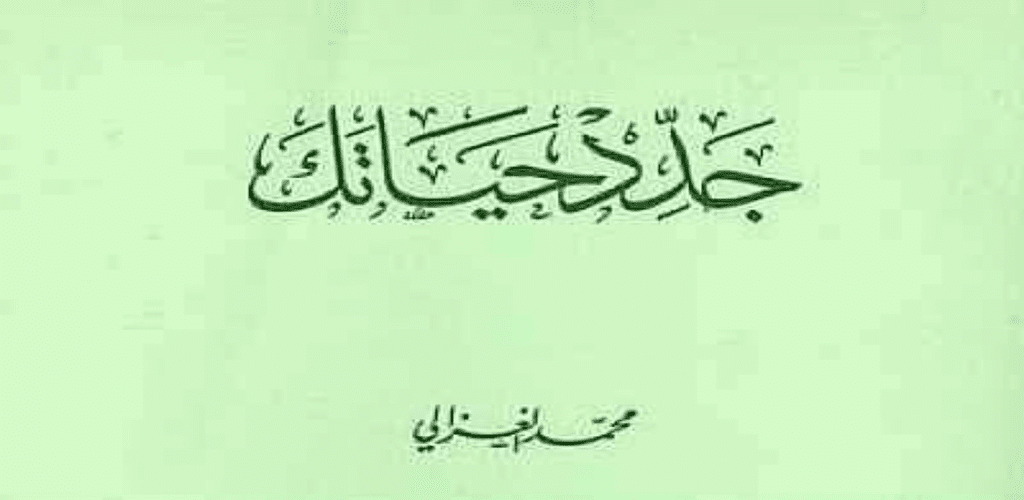 جَدِّدْ حَيَاتَكَ
محمّد الغزالي